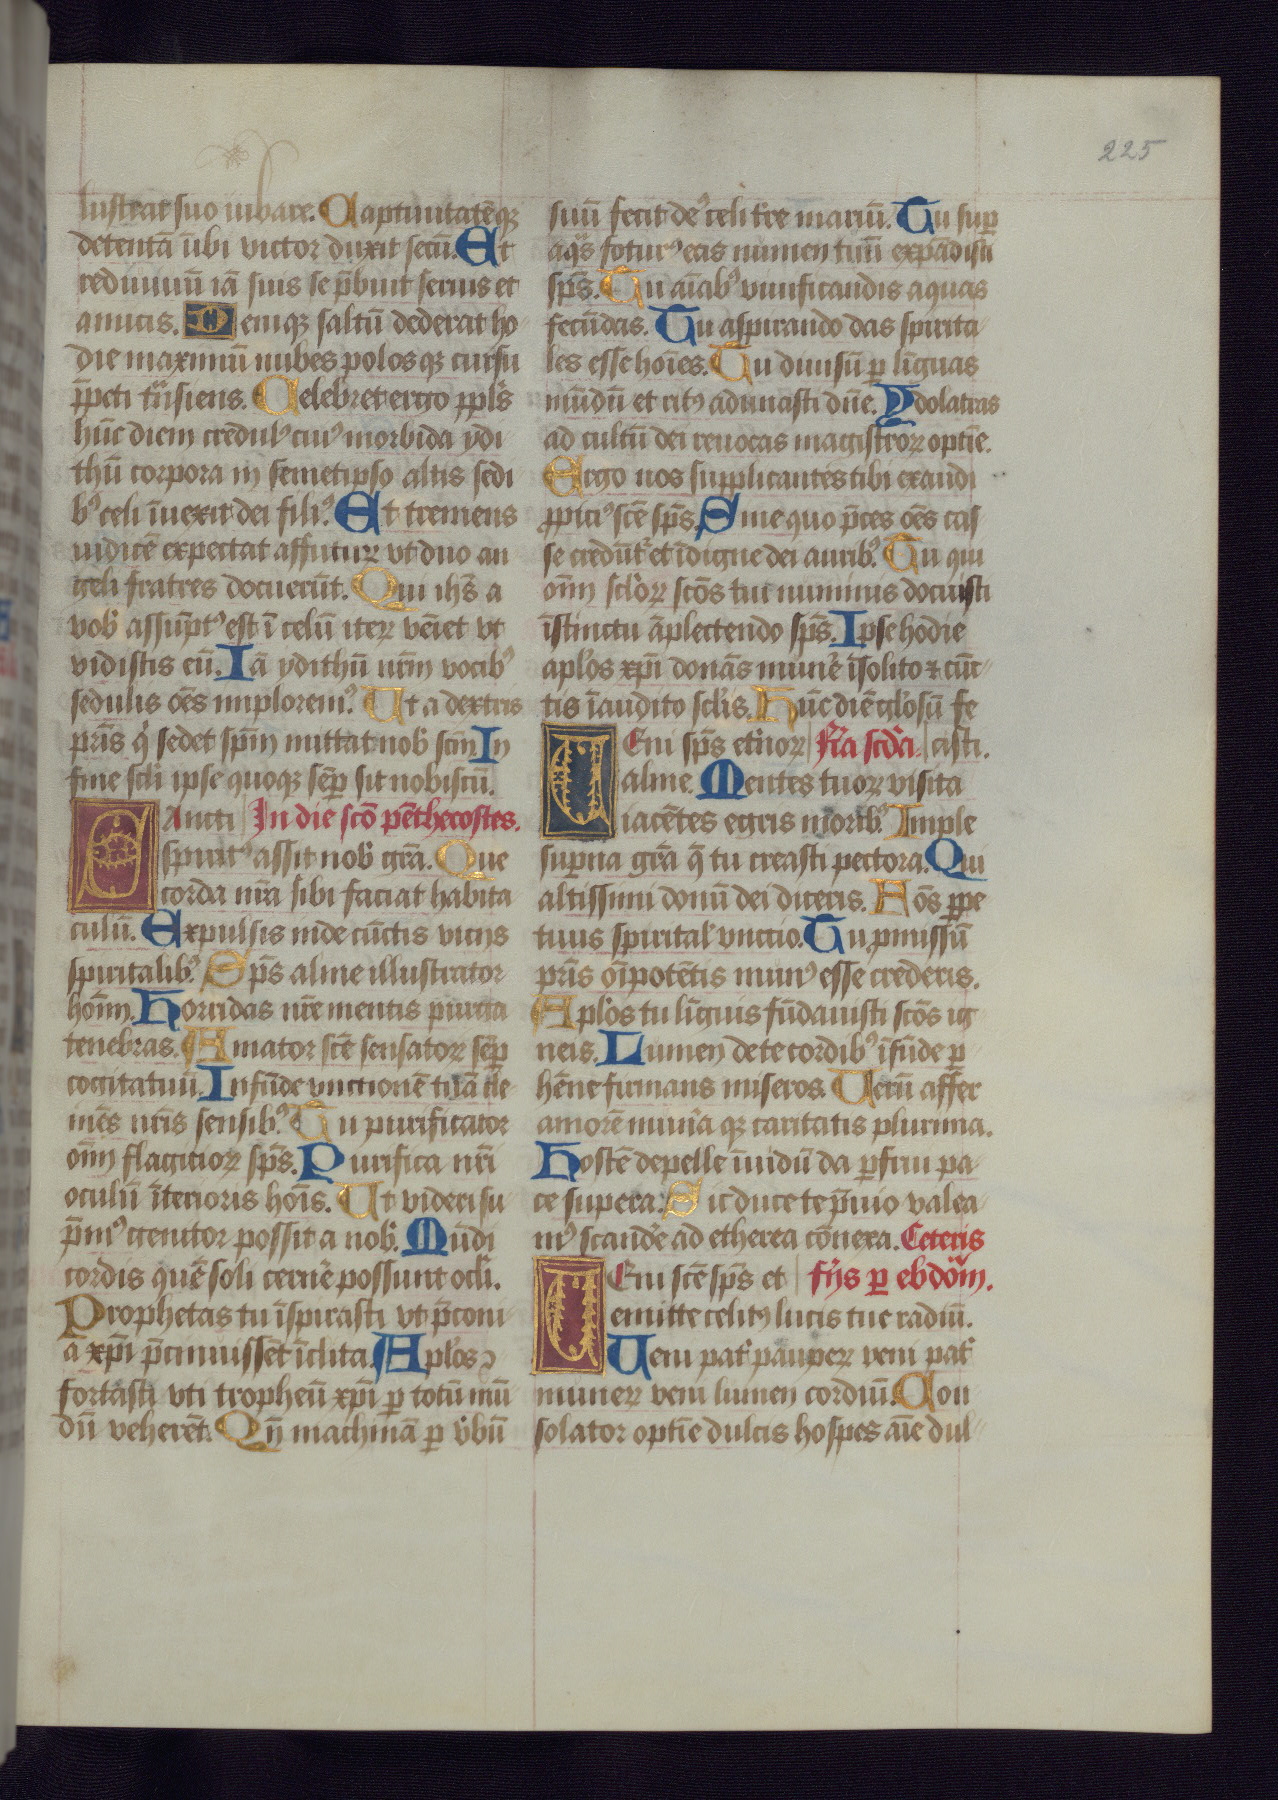 225
lustrat suo iubare. Captiuitatēqꝫ
detentā ubi victor duxit secū. Et
rediuiuū iā suis se p̄buit seruis et
amicis. Deniqꝫ saltū dederat ho
die maximū nubes polosqꝫ cursu
p̄peti trāsiens. Celebret ergo ppl's
hūc diem credul' cui' morbida ydi
thū corpora in semetipso altis sedi
b' celi īuexit dei fili'. Et tremens
iudicē expectat affuturꝝ vt duo an
geli fratres docuerūt. Qui ihs̄ a
vob' assūpt' est ī celū iterꝝ veīet vt
vidistis eū. Iā ydithū nrīm vocib'
sedulis oēs implorem'. Ut a dextris
pr̄is q' sedet spm̄ mittat nob' scm̄ In
fine scli ipse quoqꝫ sēp sit nobiscū.
Sancti In die scō pēthecostes.
spirit' assit nob' grā. Que
corda nrā sibi faciat habita
culū. Expulsis inde cūctis vicijs
spiritalib'. Sp̄s alme illustrator
hoīm. Horridas nrē mentis purga
tenebras. Amator scē sensatoꝝ sēp
cogitatuū. Infūde vnctionē tuā cle
mēs nrīs sensib'. Tu purificator
oīm flagitioꝝ sp̄s. Purifica nrī
oculū īterioris hoīs. Ut videri su
p̄m' genitor possit a nob'. Mūdi
cordis quē soli cernē possunt oclī.
Prophetas tu īspirasti vt p̄coni
a xp̄i p̄cinuissēt īclita. Aplos
fortasti vti tropheū xp̄i p totū mū
dū veherēt. Qn̄ machinā p ūbū
suū fecit de' celi tre mariū. Tu sup
aq's fotur' eas numen tuū expādisti
sp̄s. Tu aīab' viuificandis aquas
fecūdas. Tu aspirando das spirita
les esse hoīes. Tu diuisū p līguas
mūdū et rit' adunasti dn̄e. Ydolatras
ad cultū dei reuocas magistroꝝ optīe.
Ergo nos supplicantes tibi exaudi
ppici' scē sp̄s. Sine quo p̄ces oēs cas
se credūt' et īdigne dei aurib'. Tu qui
oīm scl'oꝝ scōs tui numinis docuisti
īstinctu āplectendo sp̄s. Ipse hodie
apl'os xp̄i donās munē īsolito ⁊ cūc
tis īaudito scl'is. Hūc diē gl'osū fe
Ueni sp̄s et'noꝝ Fr̄a scd'a. cisti.
alme. Mentes tuoꝝ visita
iacētes egris morib'. Imple
sup̄na grā q̄ tu creasti pectora. Qui
altissimi donū dei diceris. Fōs ppe
tuus spirital' vnctio. Tu pmissū
pr̄is oīpotētis mun' esse crederis.
Apl'os tu līguis fūdauisti scōs ig
neis. Lumen de te cordib' īfūde p
hēne firmans miseros. Uerū affer
amorē mun'a qꝫ caritatis plurima.
Hostē depelle īuidū da pfrui pa
ce supera. Sic ducte te p̄uio valea
m' scandē ad etherea cōnexa. Ceteris
Ueni scē sp̄s et fīȷs p ebdōm.
emitte celit' lucis tue radiū.
Ueni pat' paupeꝝ veni pat'
muneꝝ veni lumen cordiū. Con
solator optīe dulcis hospes aīe dul